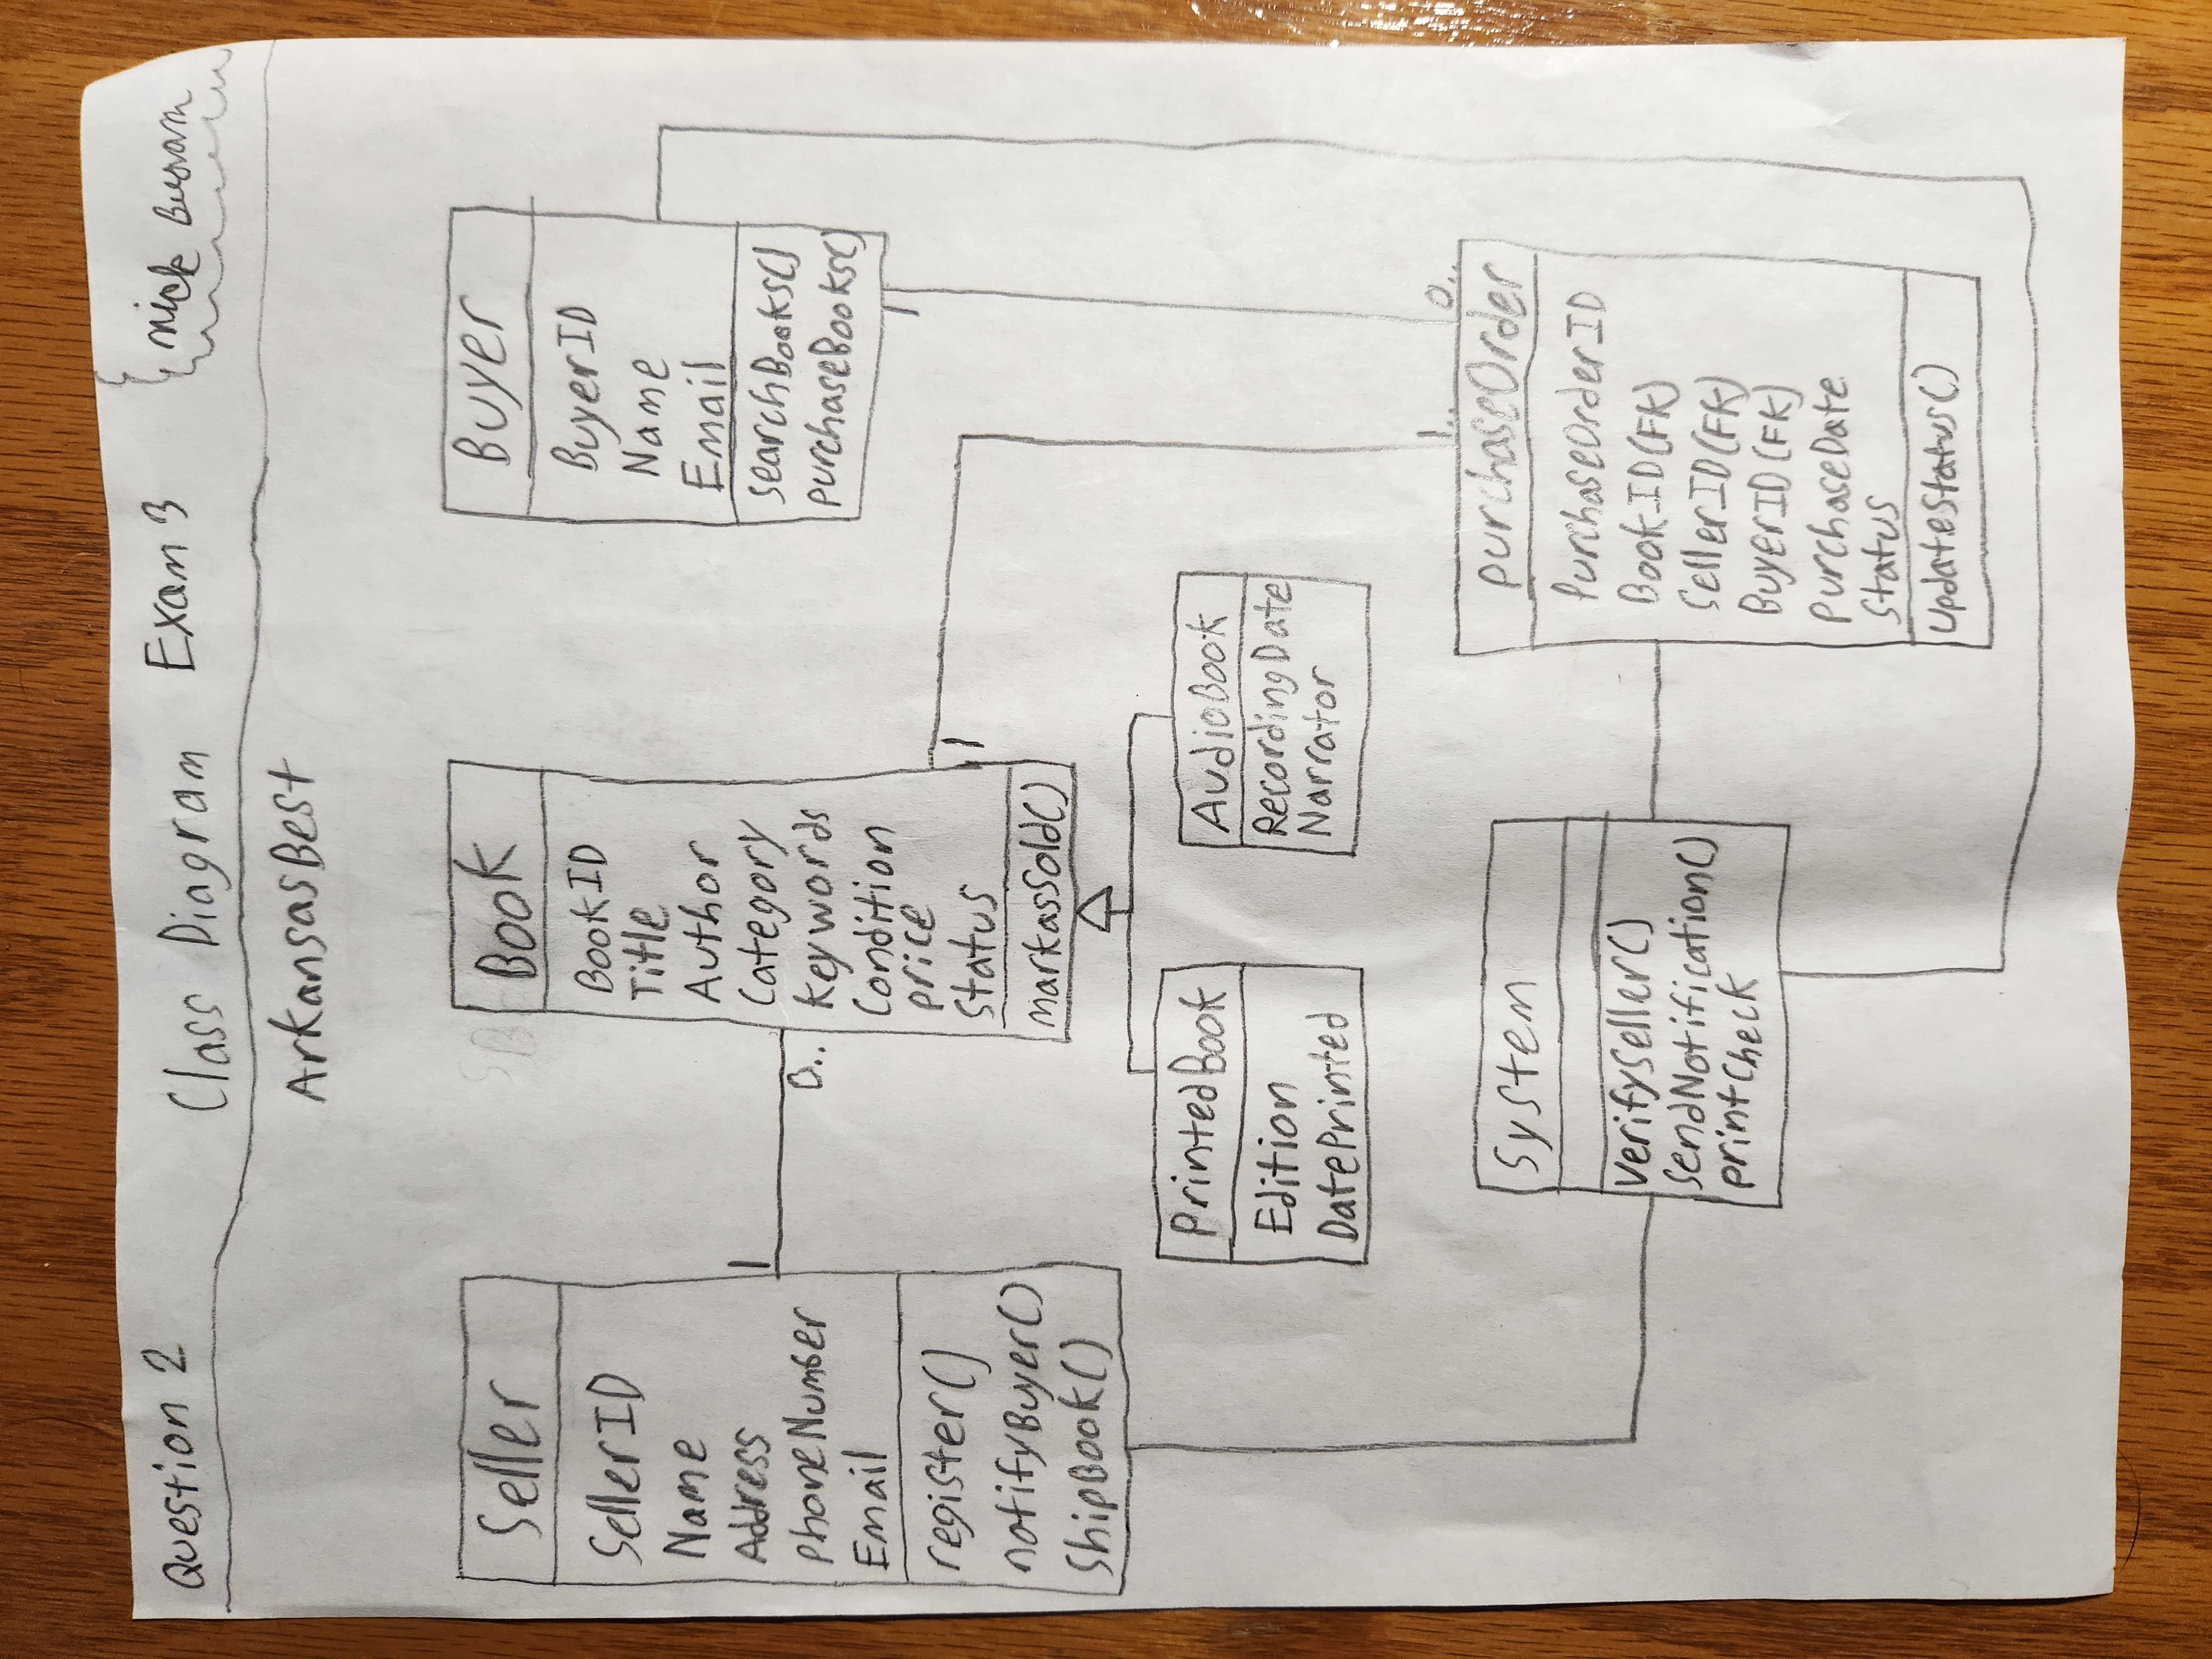 Question 2 Class Diagram Exam 3 Nick
ArkansasBest
Seller
SellerID
Name
Address
phoneNumber
Email
register()
notifyBuyer()
ShipBook()
1
0..
Book
BookID
Title
Author
Category
keywords
Condition
price
Status
markasSold()
1
Buyer
BuyerID
Name
Email
searchBooks()
purchaseBooks()
1
PrintedBook
Edition
DatePrinted
AudioBook
RecordingDate
Narrator
System
VerifySeller()
SendNotification()
printCheck
1..
0..
purchaseOrder
PurchaseOrderID
BookID(FK)
SellerID(FK)
BuyerID(FK)
PurchaseDate
Status
UpdateStatus()